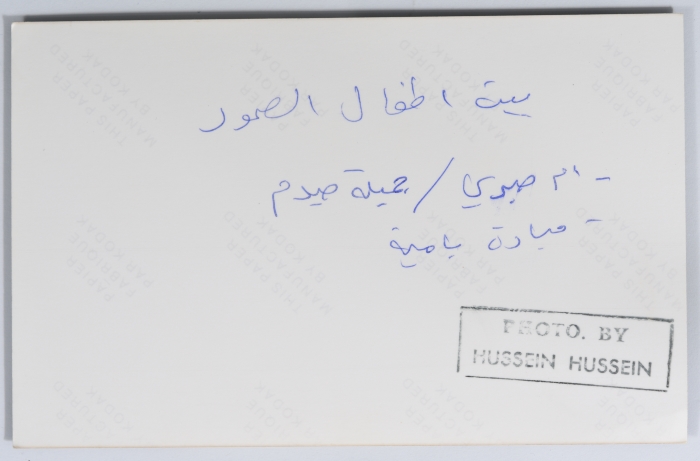 بيت اطفال الصمود
- ام صبري / جميلة صيدم
- ميادة بامية
PHOTO. BY
HUSSEIN HUSSEIN
THIS PAPER
MANUFACTURED
BY KODAK
PAPIER
FABRIQUE
PAR KODAK